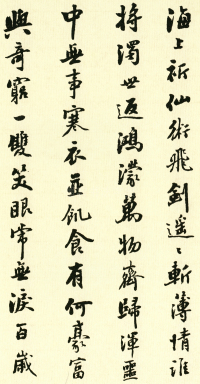 海上祈仙術飛劍遥々斬薄情誰
將濁世返鴻濛萬物齊歸渾噩
中無事寒衣並飢食有何豪富
與奇窮一雙笑眼常無淚百歲